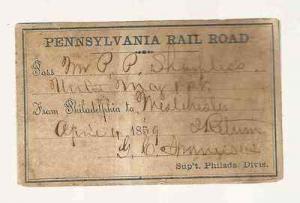 PENNSYLVANIA RAIL ROAD
Pass Mr P. P.
Until May 1st
From Philadelphia to Westchester
April 1859 & Return
G. C.
Sup't. Philada. Divis.